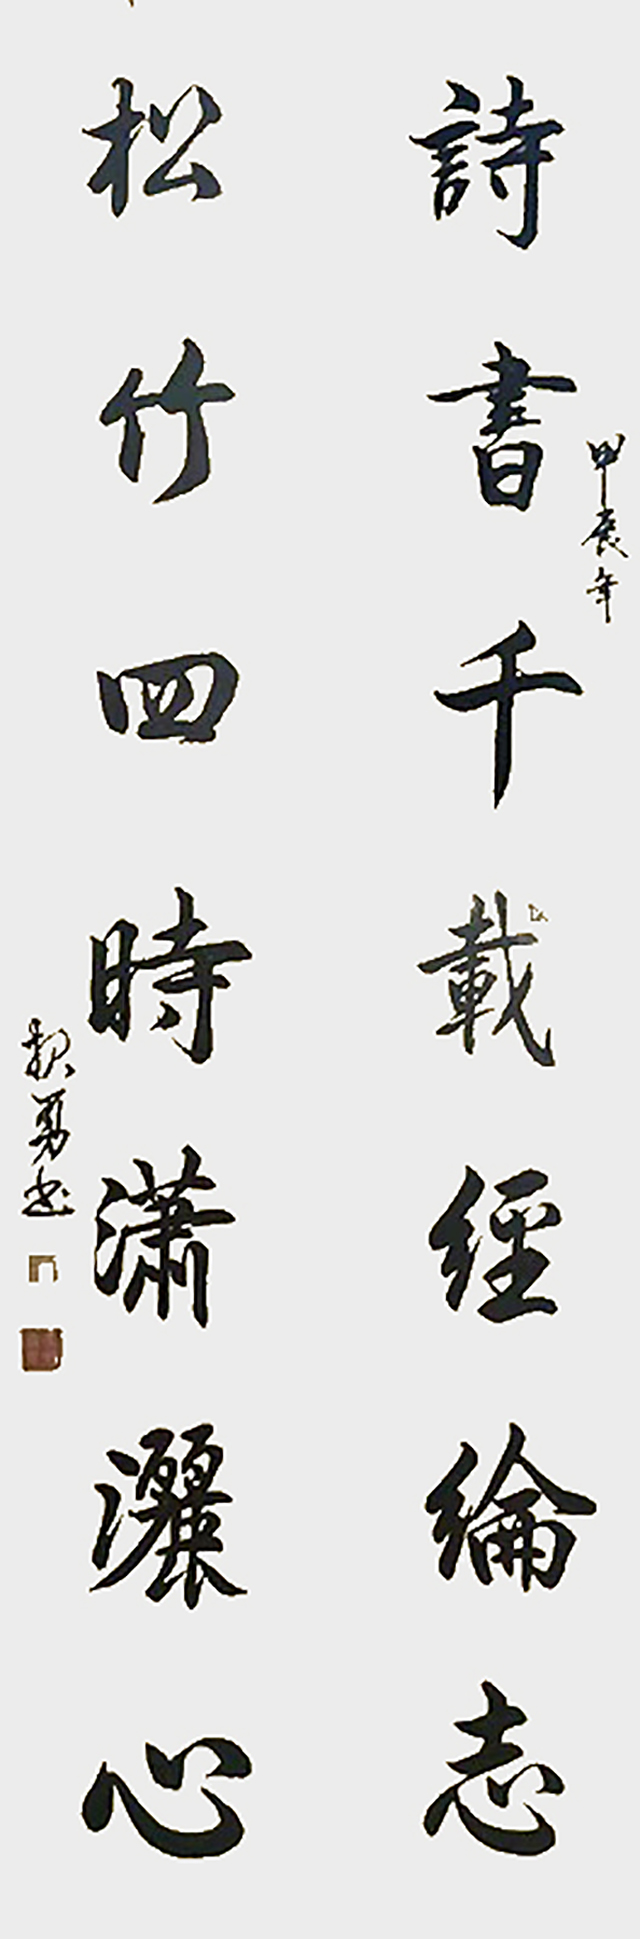 甲辰年
詩書千載經綸志
松竹四時瀟灑心
勇书